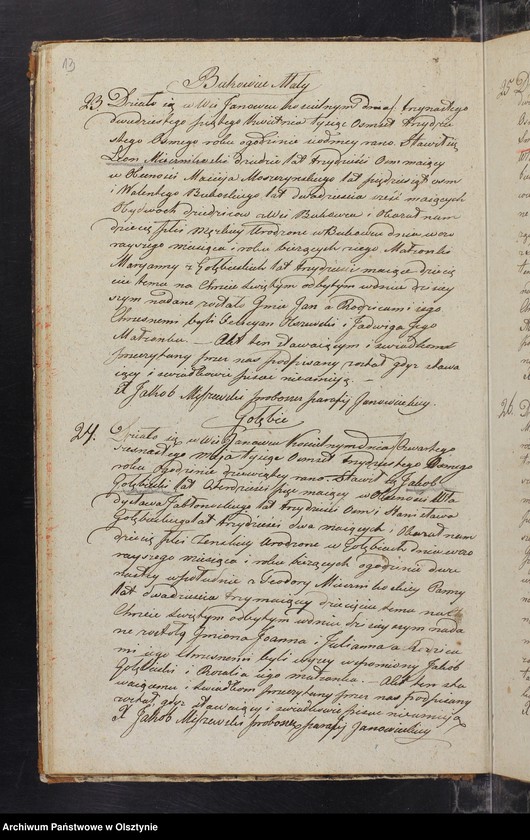 13
Bukowiec Mały
23 Działo się w Wsi Janowcu kościelnym dnia / trzynastego
dwudziestego piątego Kwietnia tysiąc Osmset trzydzie
stego Osmego roku o godzinie rano. Stawił się
Leon Mierznikoski lat trzydzieści Osm maiący
w Obecności Macieja lat pięćdziesiąt osm
i Walentego Bukoskiego lat dwadziescia sześć maiących
Obydwóch dziedziców z Wsi Bukowca i Okazał nam
dziecię płci męzkiey Urodzone w Bukowcu dnia wczo
rayszego miesiąca i roku bieżących z iego Małżonki
Maryanny z Gołębieskich lat trzydzieści maiące dziecię
ciu temu na Chrzcie świętym odbytym w dniu dzisiey
szym nadane zostało Imie Jan a Rodzicami iego
Chrzesnemi byli i Jadwiga Jego
Małżonka. — Akt ten stawaiącym i świadkom
przeczytany przez nas podpisany został gdyż stawa
iący i świadkowie pisać nieumieją. —
X Jakob proboszcz parafij Janowieckiey.
Gołębie
24. Działo się w Wsi Janowcu Kościelnym dnia / Czwartego
szesnastego Maja tysiąc Osmset trzydziestego Osmego
roku o godzinie dziewiątey rano. Stawił się Jakob
Gołębieski lat maiący w Obecności Wła
dysława Jabłonoskiego lat trzydzieści Osm i Stanisława
Gołębieskiego lat trzydzieści dwa maiących i Okazał nam
dziecię płci Zenskiey Urodzone w Gołębiach dnia wczo
rayszego miesiąca i roku bieżących o godzinie dwu
nastey w południe z Teodory Panny
lat dwadzieścia trzy maiący dziecięciu temu na
Chrzcie świętym odbytym w dniu dzisieyszym nada
ne zostały Imiona Joanna i Julianna a Rodzica
mi iego Chrzesnemi byli wyżey wspomniony Jakob
Gołębieski i Rozalia iego małżonka. — Akt ten sta
waiącemu i świadkom przeczytany przez nas podpisany
został gdyż stawaiący i świadkowie pisać nieumieją
X Jakob proboszcz parafij Janowieckiey
25
26.
Archiwum Państwowe w Olsztynie